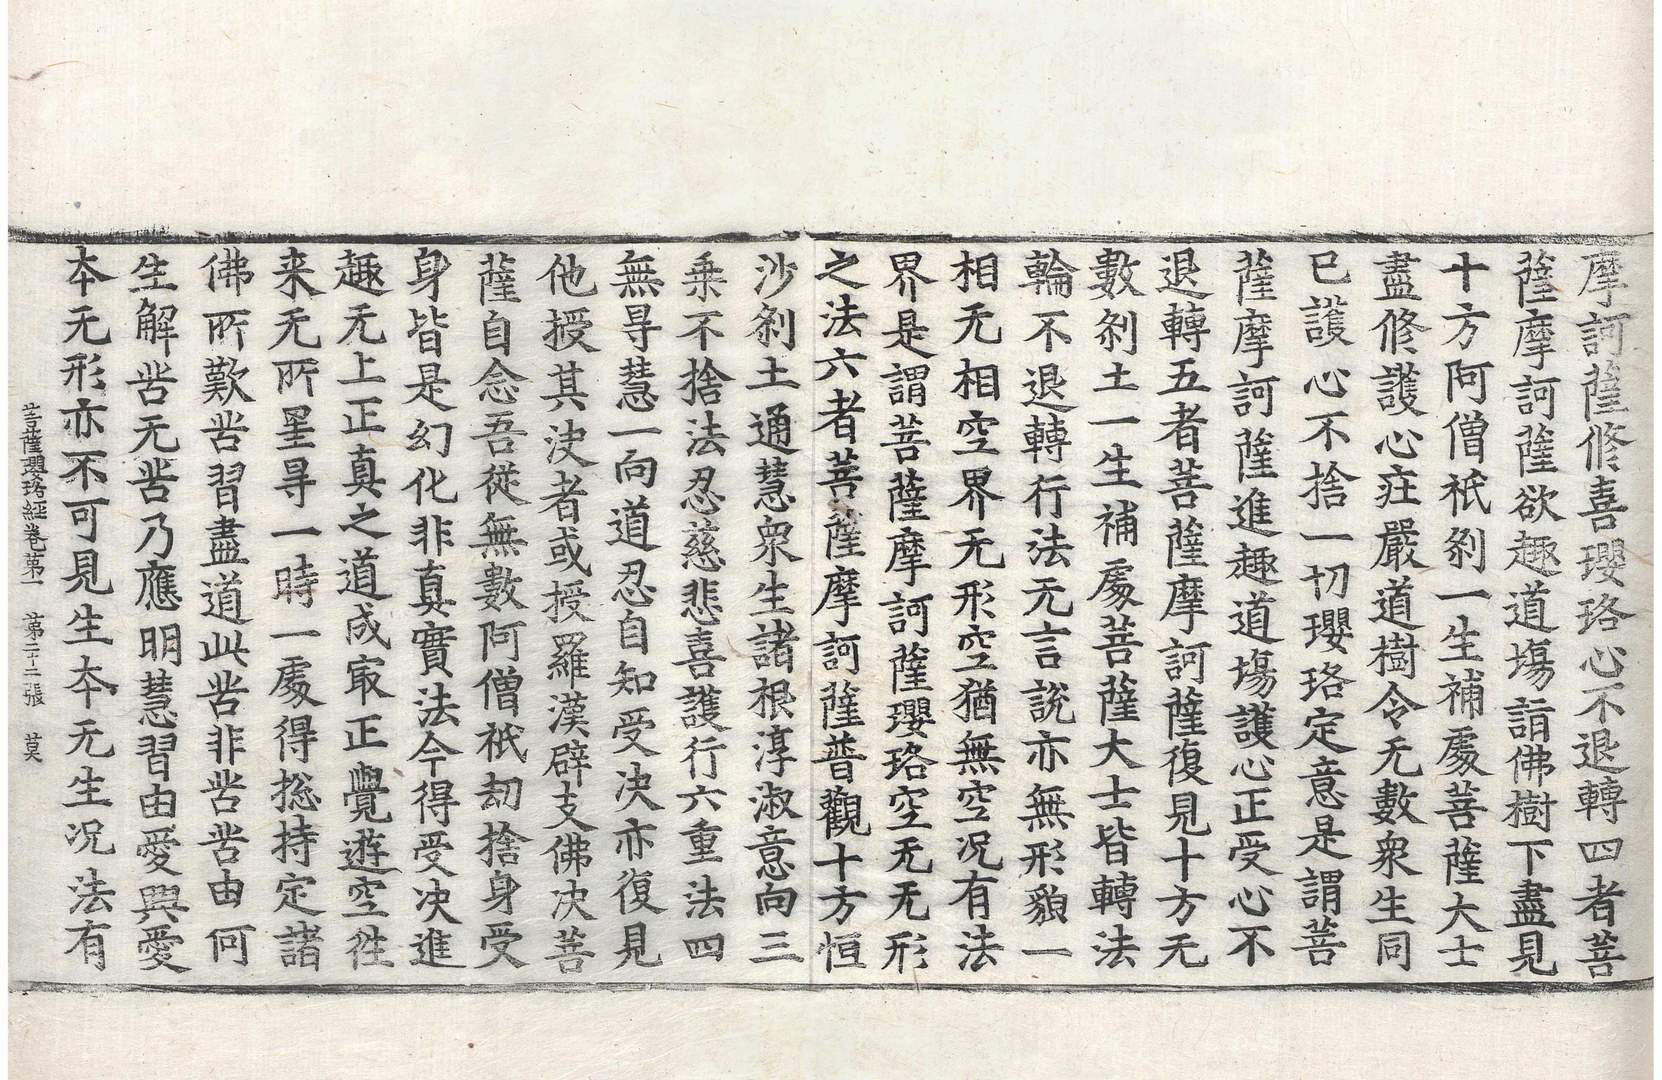 摩訶薩修喜瓔珞心不退轉四者菩
薩摩訶薩欲趣道場詣佛樹下盡見
十方阿僧祇剎一生補處菩薩大士
盡修護心莊嚴道樹令无數衆生同
已護心不捨一切瓔珞定意是謂菩
薩摩訶薩進趣道場護心正受心不
退轉五者菩薩摩訶薩復見十方无
數剎土一生補處菩薩大士皆轉法
輪不退轉行法无言說亦無形貌一
相无相空界无形空猶無空況有法
界是謂菩薩摩訶薩瓔珞空无无形
之法六者菩薩摩訶薩普觀十方恒
沙剎土通慧衆生諸根淳淑意向三
乗不捨法忍慈悲喜護行六重法四
無㝵慧一向道忍自知受决亦復見
他授其决者或授羅漢辟支佛决菩
薩自念吾從無數阿僧祇劫捨身受
身皆是幻化非真實法今得受决進
趣无上正真之道成㝡正覺遊空徃
来无所罣㝵一時一處得捴持定諸
佛所歎苦習盡道此苦非苦苦由何
生解苦无苦乃應明慧習由愛興愛
本无形亦不可見生本无生况法有
菩薩瓔珞經卷第一 第二十二張 莫